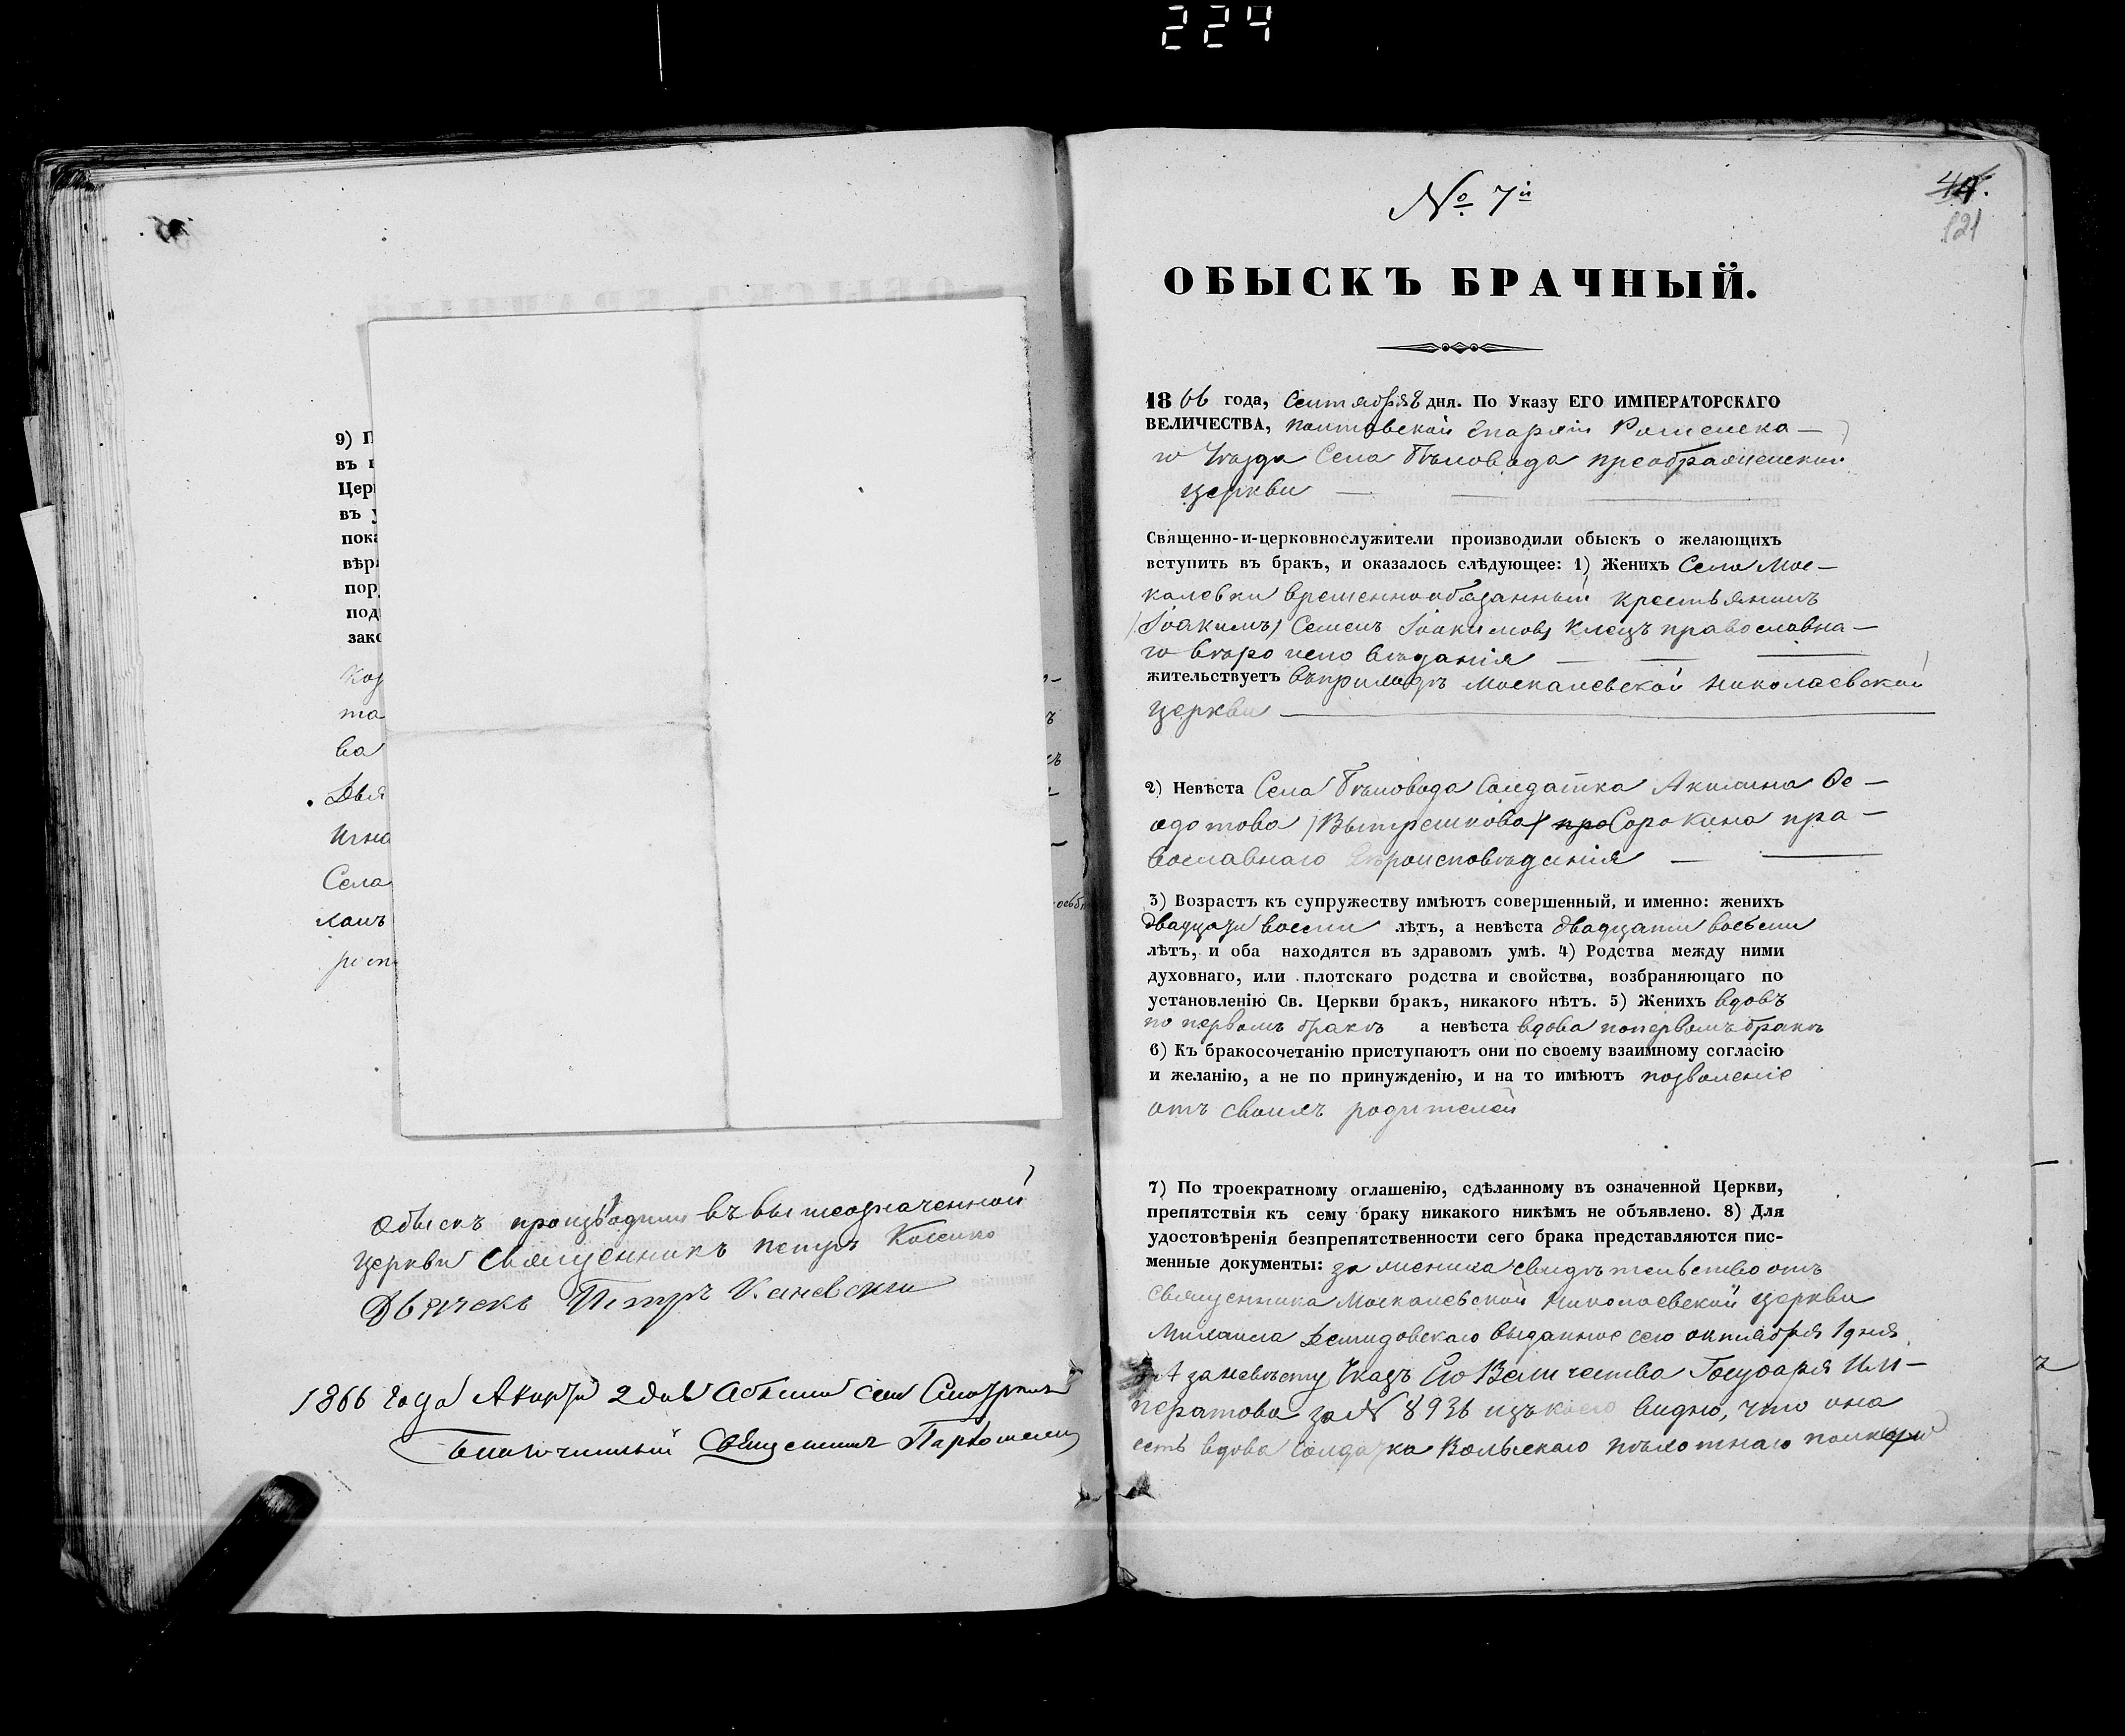 224
9) П
въ
Цер
въ у
пока
вѣр
пор
под
зако
Кор
та
ва
Двя
Игна
Села
ланъ
Обыскъ производили въ вышеозначенной
церкви Священникъ Петръ
Дьячекъ Петръ Каневскій
1866 года 2 дня
Благочинный Священникъ
№ 7й
44.
121
ОБЫСКЪ БРАЧНЫЙ.
1866 года, Сентября 8 дня. По Указу ЕГО ИМПЕРАТОРСКАГО
ВЕЛИЧЕСТВА, Полтавской Епархіи Роменска-
го Уезда Села Бѣловода преображенской
церкви
Священно-и-церковнослужители производили обыскъ о желающихъ
вступить въ бракъ, и оказалось слѣдующее: 1) Женихъ Села Мос-
калевки временнообязанный крестьянинъ
(Іоакимъ) Семенъ Іоакимовъ Клецъ православна-
го вѣроисповѣданія
жительствуетъ въ приходѣ Москалевской Николаевской
церкви
2) Невѣста Села Бѣловода Солдатка Акилина Ѳе-
одотова (Вытрешкова) про Сорокина пра-
вославнаго вѣроисповѣданія
3) Возрастъ къ супружеству имѣютъ совершенный, и именно: женихъ
двадцати восьми лѣтъ, а невѣста двадцати восьми
лѣтъ, и оба находятся въ здравомъ умѣ. 4) Родства между ними
духовнаго, или плотскаго родства и свойства, возбраняющаго по
установленію Св. Церкви бракъ, никакого нѣтъ. 5) Женихъ вдовъ
по первомъ бракѣ а невѣста вдова по первомъ бракѣ
6) Къ бракосочетанію приступаютъ они по своему взаимному согласію
и желанію, а не по принужденію, и на то имѣютъ позволеніе
отъ своихъ родителей
7) По троекратному оглашенію, сдѣланному въ означенной Церкви,
препятствія къ сему браку никакого никѣмъ не объявлено. 8) Для
удостовѣренія безпрепятственности сего брака представляются пис-
менные документы: за жениха свидѣтельство отъ
священника Москалевской Николаевской церкви
Михаила Демидовскаго выданное сего октября 1 дня
А за невѣсту Указъ Его Величества Государя Им-
ператова за № 8936 изъ коего видно, что она
есть вдова солдатка Вольскаго пѣхотнаго полка